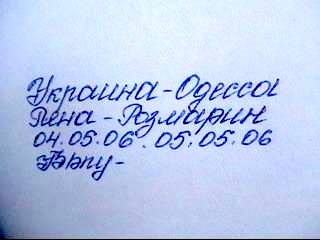 Украина-Одесса
Лена - Розмарин
04.05.06. 05.05.06